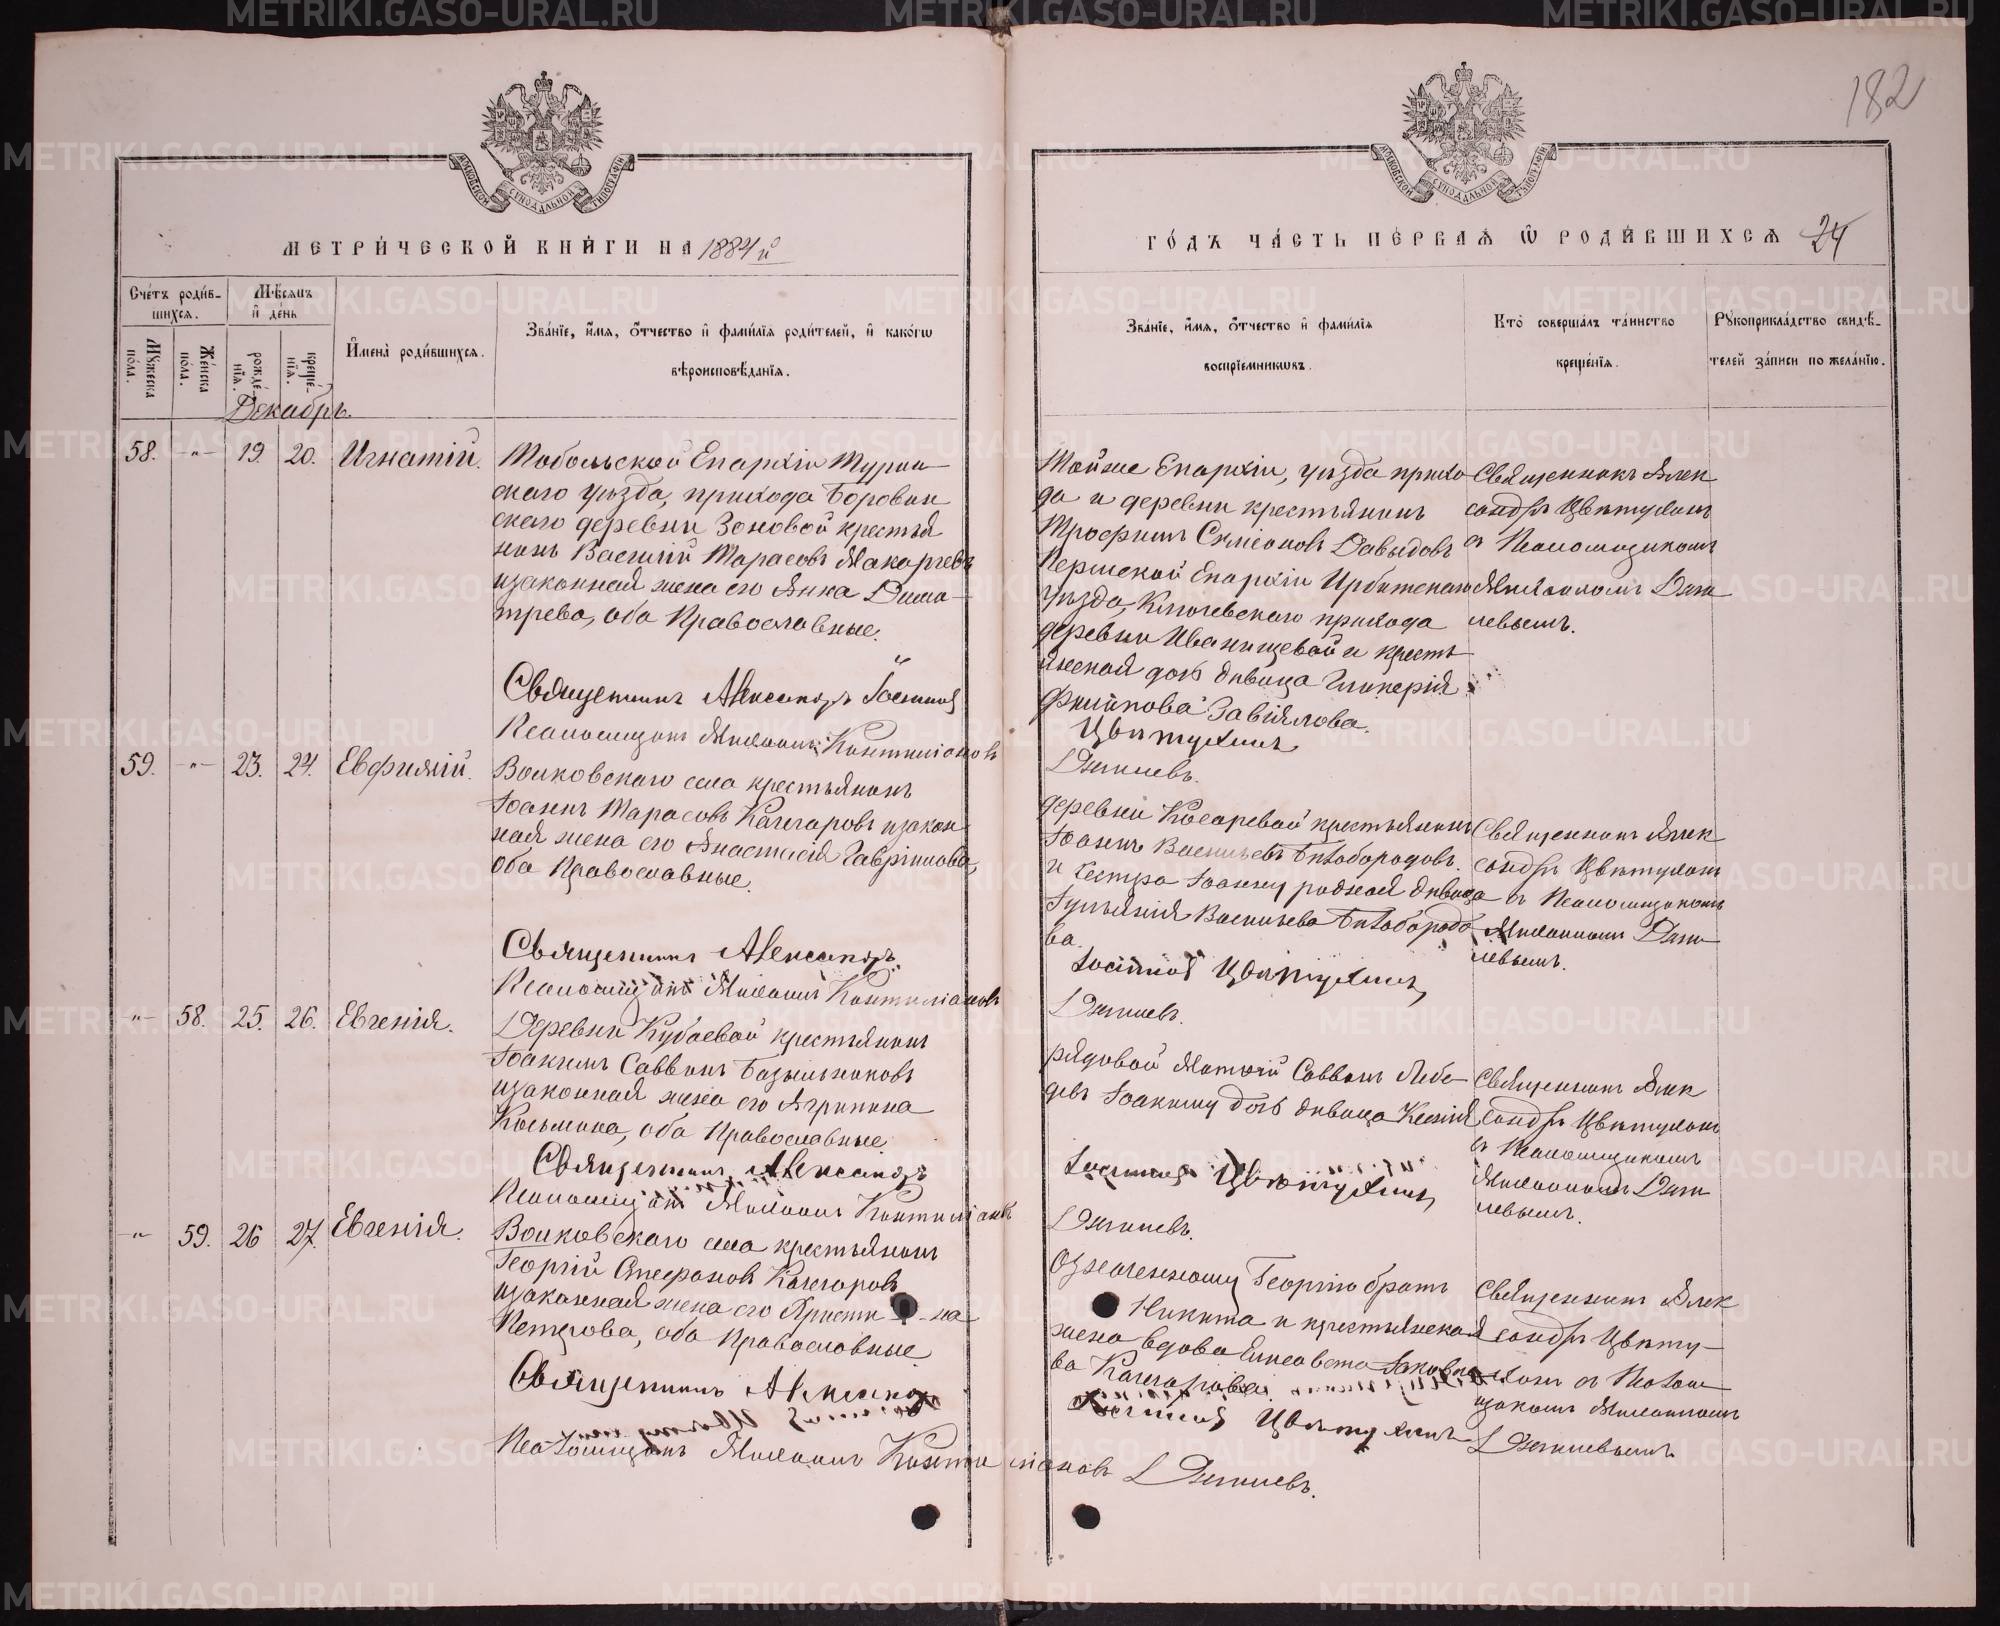 182
МОСКОВСКОЙ СѴНОДАЛЬНОЙ ТИПОГРАФІИ
МЕТРИ́ЧЕСКОЙ КНИ́ГИ НА 1884 й
Сче́тъ роди́в-
шихсѧ.
Мѣ́сяцъ
и҆ де́нь
Мꙋ́жеска
по́ла.
Же́нска
по́ла.
рожде́-
нїѧ.
креще́-
нїѧ.
И҆мена̀ роди́вшихсѧ.
Зва́нїе, и҆́мѧ, ѻ҆́тчество и҆ фами́лїѧ роди́телей, и҆ како́гѡ
вѣроисповѣ́данїѧ.
Декабрь.
58. -"- 19. 20. Игнатій.
Тобольской Епархіи Турин-
скаго уѣзда, прихода Боровин
скаго деревни Зоновой крестья
нинъ Василій Тарасовъ Макаревъ
изаконная жена его Анна Дими-
трева, оба Православные.
Священникъ Александръ Іоанновъ
Псаломщикъ Михаилъ Контиліановъ
59. -"- 23. 24. Евфимій.
Волковскаго села крестьянинъ
Іоаннъ Тарасовъ Качгаровъ изакон
ная жена его Анастасія Гавріилова,
оба Православные.
Священникъ Александръ
Псаломщикъ Михаилъ Контиліановъ
-"- 58. 25. 26. Евгенія.
Деревни Кубаевой крестьянинъ
Іоакимъ Саввинъ Базыльниковъ
изаконная жена его Агрипина
Косьмина, оба Православные.
Священникъ Александръ
Псаломщикъ Михаилъ Контиліановъ
-"- 59. 26 27. Евгенія.
Волковскаго села крестьянинъ
Георгій Стефановъ Качгаровъ
изаконная жена его Христи-на
Петрова, оба Православные.
Священникъ Александръ
Псаломщикъ Михаилъ Контиліановъ
МОСКОВСКОЙ СѴНОДАЛЬНОЙ ТИПОГРАФІИ
ГО́ДЪ ЧА́СТЬ ПЕ́РВАѦ Ѿ РОДИ́ВШИХСѦ 24
Зва́нїе, и҆́мѧ, ѻ҆́тчество и҆ фами́лїѧ
воспрїе́мникѡвъ.
Кто̀ соверша́лъ та́инство
креще́нїѧ.
Рꙋкоприкла́дство свидѣ́-
телей за́писи по жела́нїю.
Тойже Епархіи, уѣзда прихо
да и деревни крестьянинъ
Трофимъ Симеоновъ Давыдовъ
Пермской Епархіи Ирбитскаго
уѣзда, Ключевскаго прихода
деревни Иванищевой и кресть
янская дочь дѣвица Гликерія
Филипова Завіялова.
Цвѣтухинъ
Дягилевъ.
Священникъ Алек
сандръ Цвѣтухинъ
съ Псаломщикомъ
Михаиломъ Дяги
левымъ.
деревни Косаревой крестьянинъ
Іоаннъ Васильевъ Бѣлобородовъ.
и сестра Іоанну родная дѣвица
Іуліанія Васильева Бѣлобородо
ва.
Іоанновъ Цвѣтухинъ
Дягилевъ.
Священникъ Алек
сандръ Цвѣтухинъ
съ Псаломщикомъ
Михаиломъ Дяги
левымъ.
рядовой Матѳій Саввинъ Лебе-
девъ Іоакиму дочь дѣвица Ксенія
Іоанновъ Цвѣтухинъ
Дягилевъ.
Священникъ Алек
сандръ Цвѣтухинъ
съ Псаломщикомъ
Михаиломъ Дяги
левымъ.
Означенному Георгію братъ
Никита и крестьянская
жена вдова Елисавета Іаковле
ва Качгарова.
Іоанновъ Цвѣтухинъ
Дягилевъ.
Священникъ Алек
сандръ Цвѣту-
хинъ съ Псалом
щикомъ Михаиломъ
Дягилевымъ.
METRIKI.GASO-URAL.RU